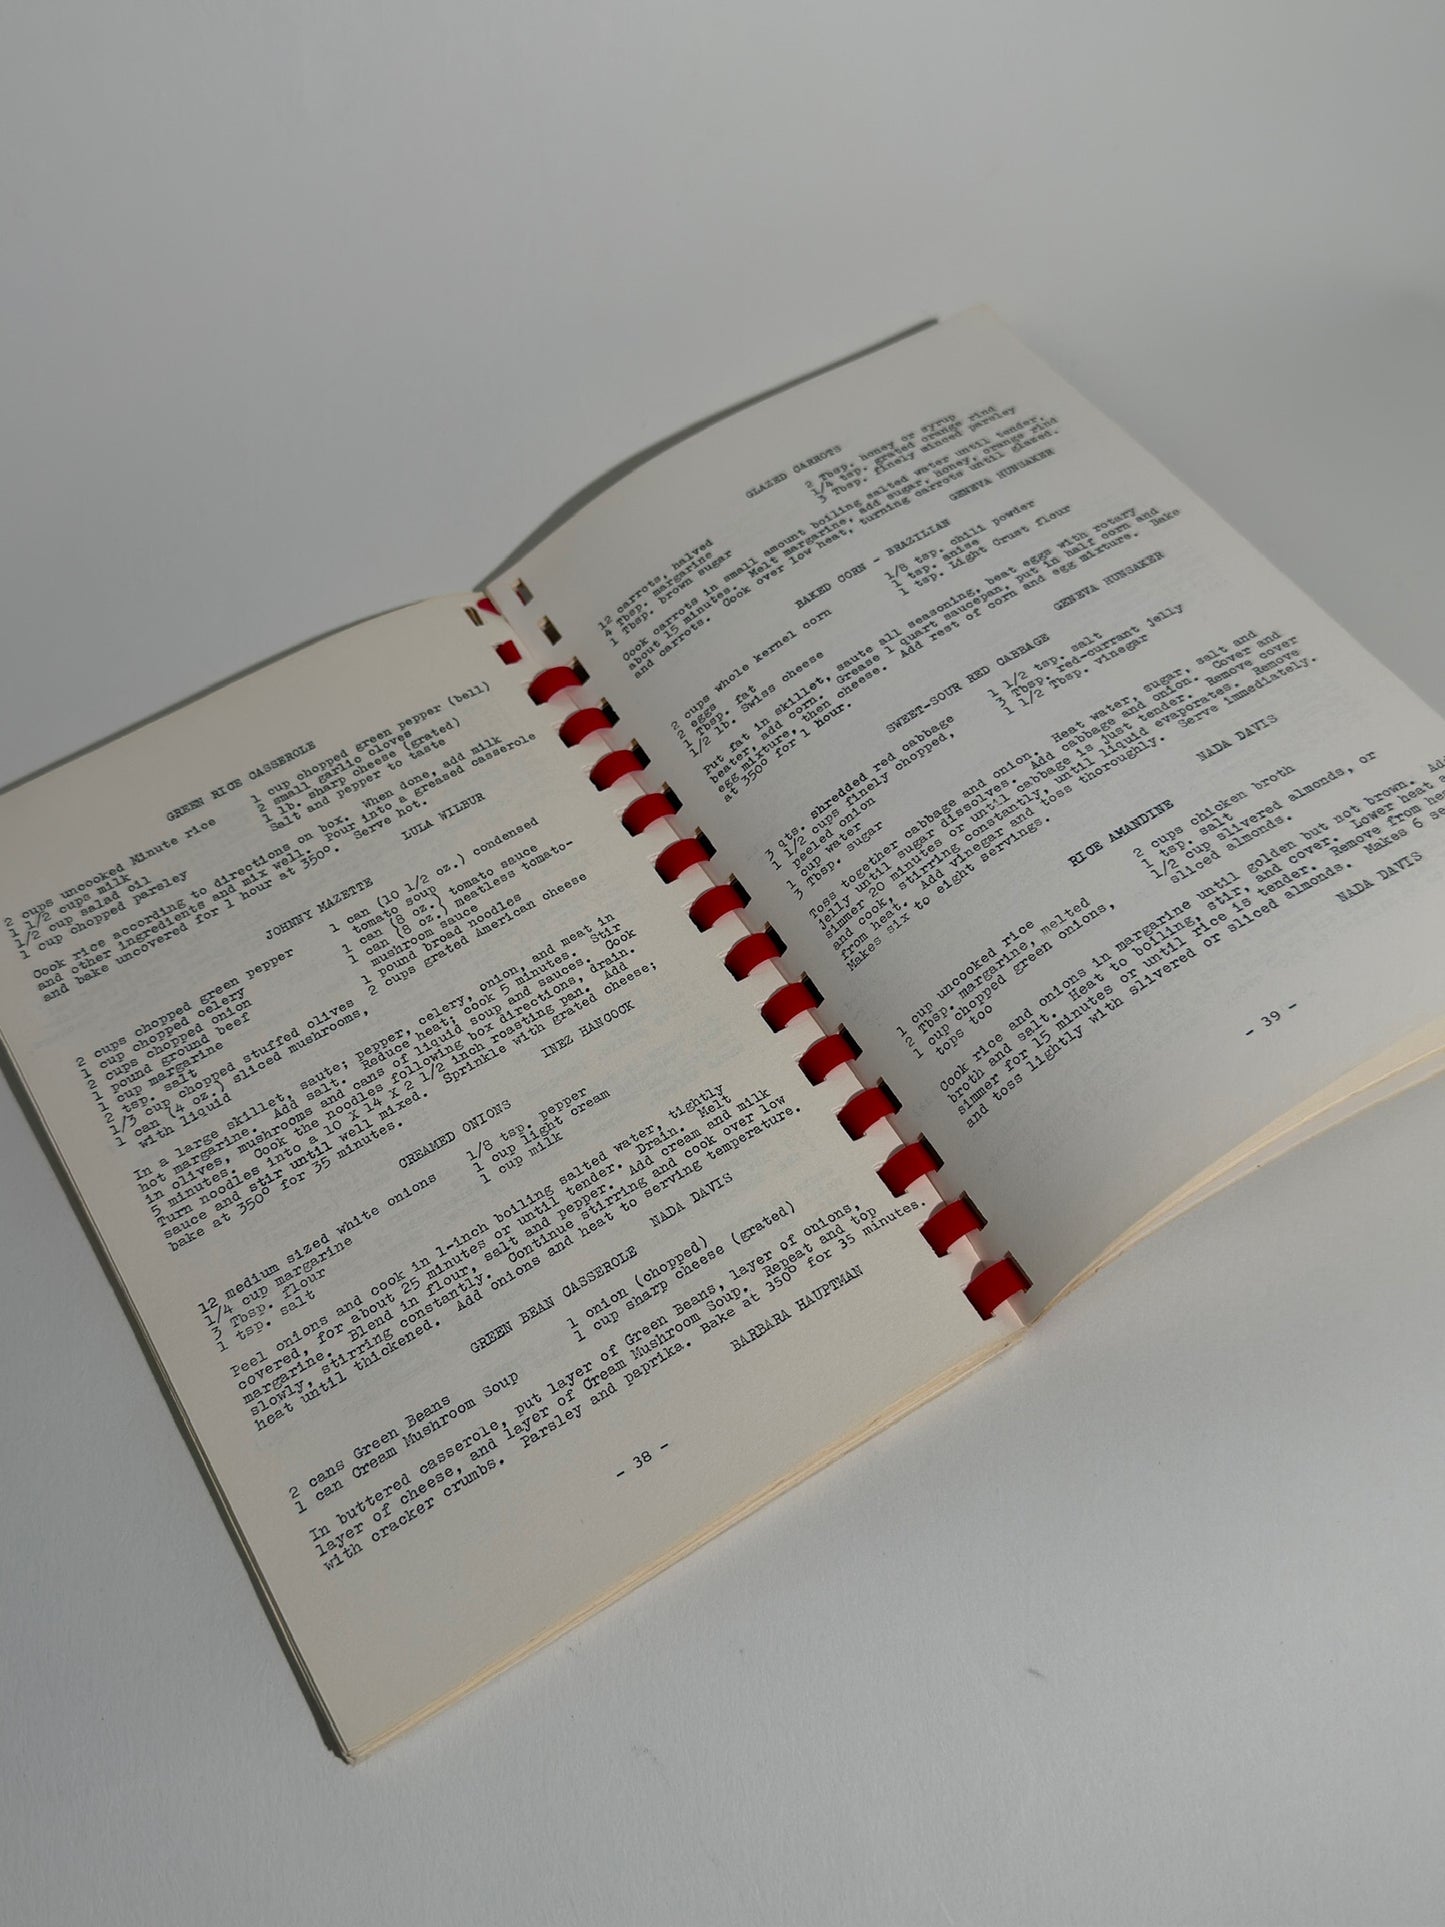 GREEN RICE CASSEROLE
2 cups uncooked Minute rice 1 cup chopped green pepper (bell)
1 1/2 cups milk 2 small garlic cloves
1/2 cup salad oil 1 lb. sharp cheese (grated)
1 cup chopped parsley Salt and pepper to taste
Cook rice according to directions on box. When done, add milk
and other ingredients and mix well. Pour into a greased casserole
and bake uncovered for 1 hour at 350º. Serve hot.
LULA WILBUR
JOHNNY MAZETTE
2 cups chopped green pepper 1 can (10 1/2 oz.) condensed
1 cup chopped celery tomato soup
2 cups chopped onion 1 can (8 oz.) tomato sauce
2 pound ground beef 1 can (8 oz.) meatless tomato-
1 cup margarine mushroom sauce
1 tsp. salt 1 pound broad noodles
1/3 cup chopped stuffed olives 2 cups grated American cheese
1 can (4 oz.) sliced mushrooms,
with liquid
In a large skillet, saute; pepper, celery, onion, and meat in
hot margarine. Add salt. Reduce heat; cook 5 minutes. Stir
in olives, mushrooms and cans of liquid soup and sauces. Cook
5 minutes. Cook the noodles following box directions, drain.
Turn noodles into a 10 X 14 X 2 1/2 inch roasting pan. Add
sauce and stir until well mixed. Sprinkle with grated cheese;
bake at 350º for 35 minutes.
INEZ HANCOCK
CREAMED ONIONS
12 medium sized white onions 1/8 tsp. pepper
1/4 cup margarine 1 cup light cream
3 Tbsp. flour 1 cup milk
1 tsp. salt
Peel onions and cook in 1-inch boiling salted water, tightly
covered, for about 25 minutes or until tender. Drain. Melt
margarine. Blend in flour, salt and pepper. Add cream and milk
slowly, stirring constantly. Continue stirring and cook over low
heat until thickened. Add onions and heat to serving temperature.
NADA DAVIS
GREEN BEAN CASSEROLE
2 cans Green Beans 1 onion (chopped)
1 can Cream Mushroom Soup 1 cup sharp cheese (grated)
In buttered casserole, put layer of Green Beans, layer of onions,
layer of cheese, and layer of Cream Mushroom Soup. Repeat and top
with cracker crumbs. Parsley and paprika. Bake at 350º for 35 minutes.
BARBARA HAUPTMAN
- 38 -
GLAZED CARROTS
12 carrots, halved 2 Tbsp. honey or syrup
4 Tbsp. margarine 1/4 tsp. grated orange rind
1 Tbsp. brown sugar 3 Tbsp. finely minced parsley
Cook carrots in small amount boiling salted water until tender,
about 15 minutes. Melt margarine, add sugar, honey, orange rind
and carrots. Cook over low heat, turning carrots until glazed.
GENEVA HUNSAKER
BAKED CORN - BRAZILIAN
2 cups whole kernel corn 1/8 tsp. chili powder
2 eggs 1 tsp. anise
1 Tbsp. fat 1 tsp. Light Crust flour
1/2 lb. Swiss cheese
Put fat in skillet, saute all seasoning, beat eggs with rotary
beater, add corn. Grease 1 quart saucepan, put in half corn and
egg mixture, then cheese. Add rest of corn and egg mixture. Bake
at 350º for 1 hour.
GENEVA HUNSAKER
SWEET-SOUR RED CABBAGE
3 qts. shredded red cabbage 1 1/2 tsp. salt
1 1/2 cups finely chopped, 3 Tbsp. red-currant jelly
peeled onion 1 1/2 Tbsp. vinegar
1 cup water
3 Tbsp. sugar
Toss together cabbage and onion. Heat water, sugar, salt and
jelly until sugar dissolves. Add cabbage and onion. Cover and
simmer 20 minutes or until cabbage is just tender. Remove cover
and cook, stirring constantly, until liquid evaporates. Remove
from heat. Add vinegar and toss thoroughly. Serve immediately.
Makes six to eight servings.
NADA DAVIS
RICE AMANDINE
1 cup uncooked rice 2 cups chicken broth
Tbsp. margarine, melted 1 tsp. salt
1 cup chopped green onions, 1/2 cup slivered almonds, or
tops too sliced almonds.
Cook rice and onions in margarine until golden but not brown.
broth and salt. Heat to boiling, stir, and cover. Lower heat
simmer for 15 minutes or until rice is tender. Remove from
and toss lightly with slivered or sliced almonds. Makes 6
NADA DAVIS
- 39 -